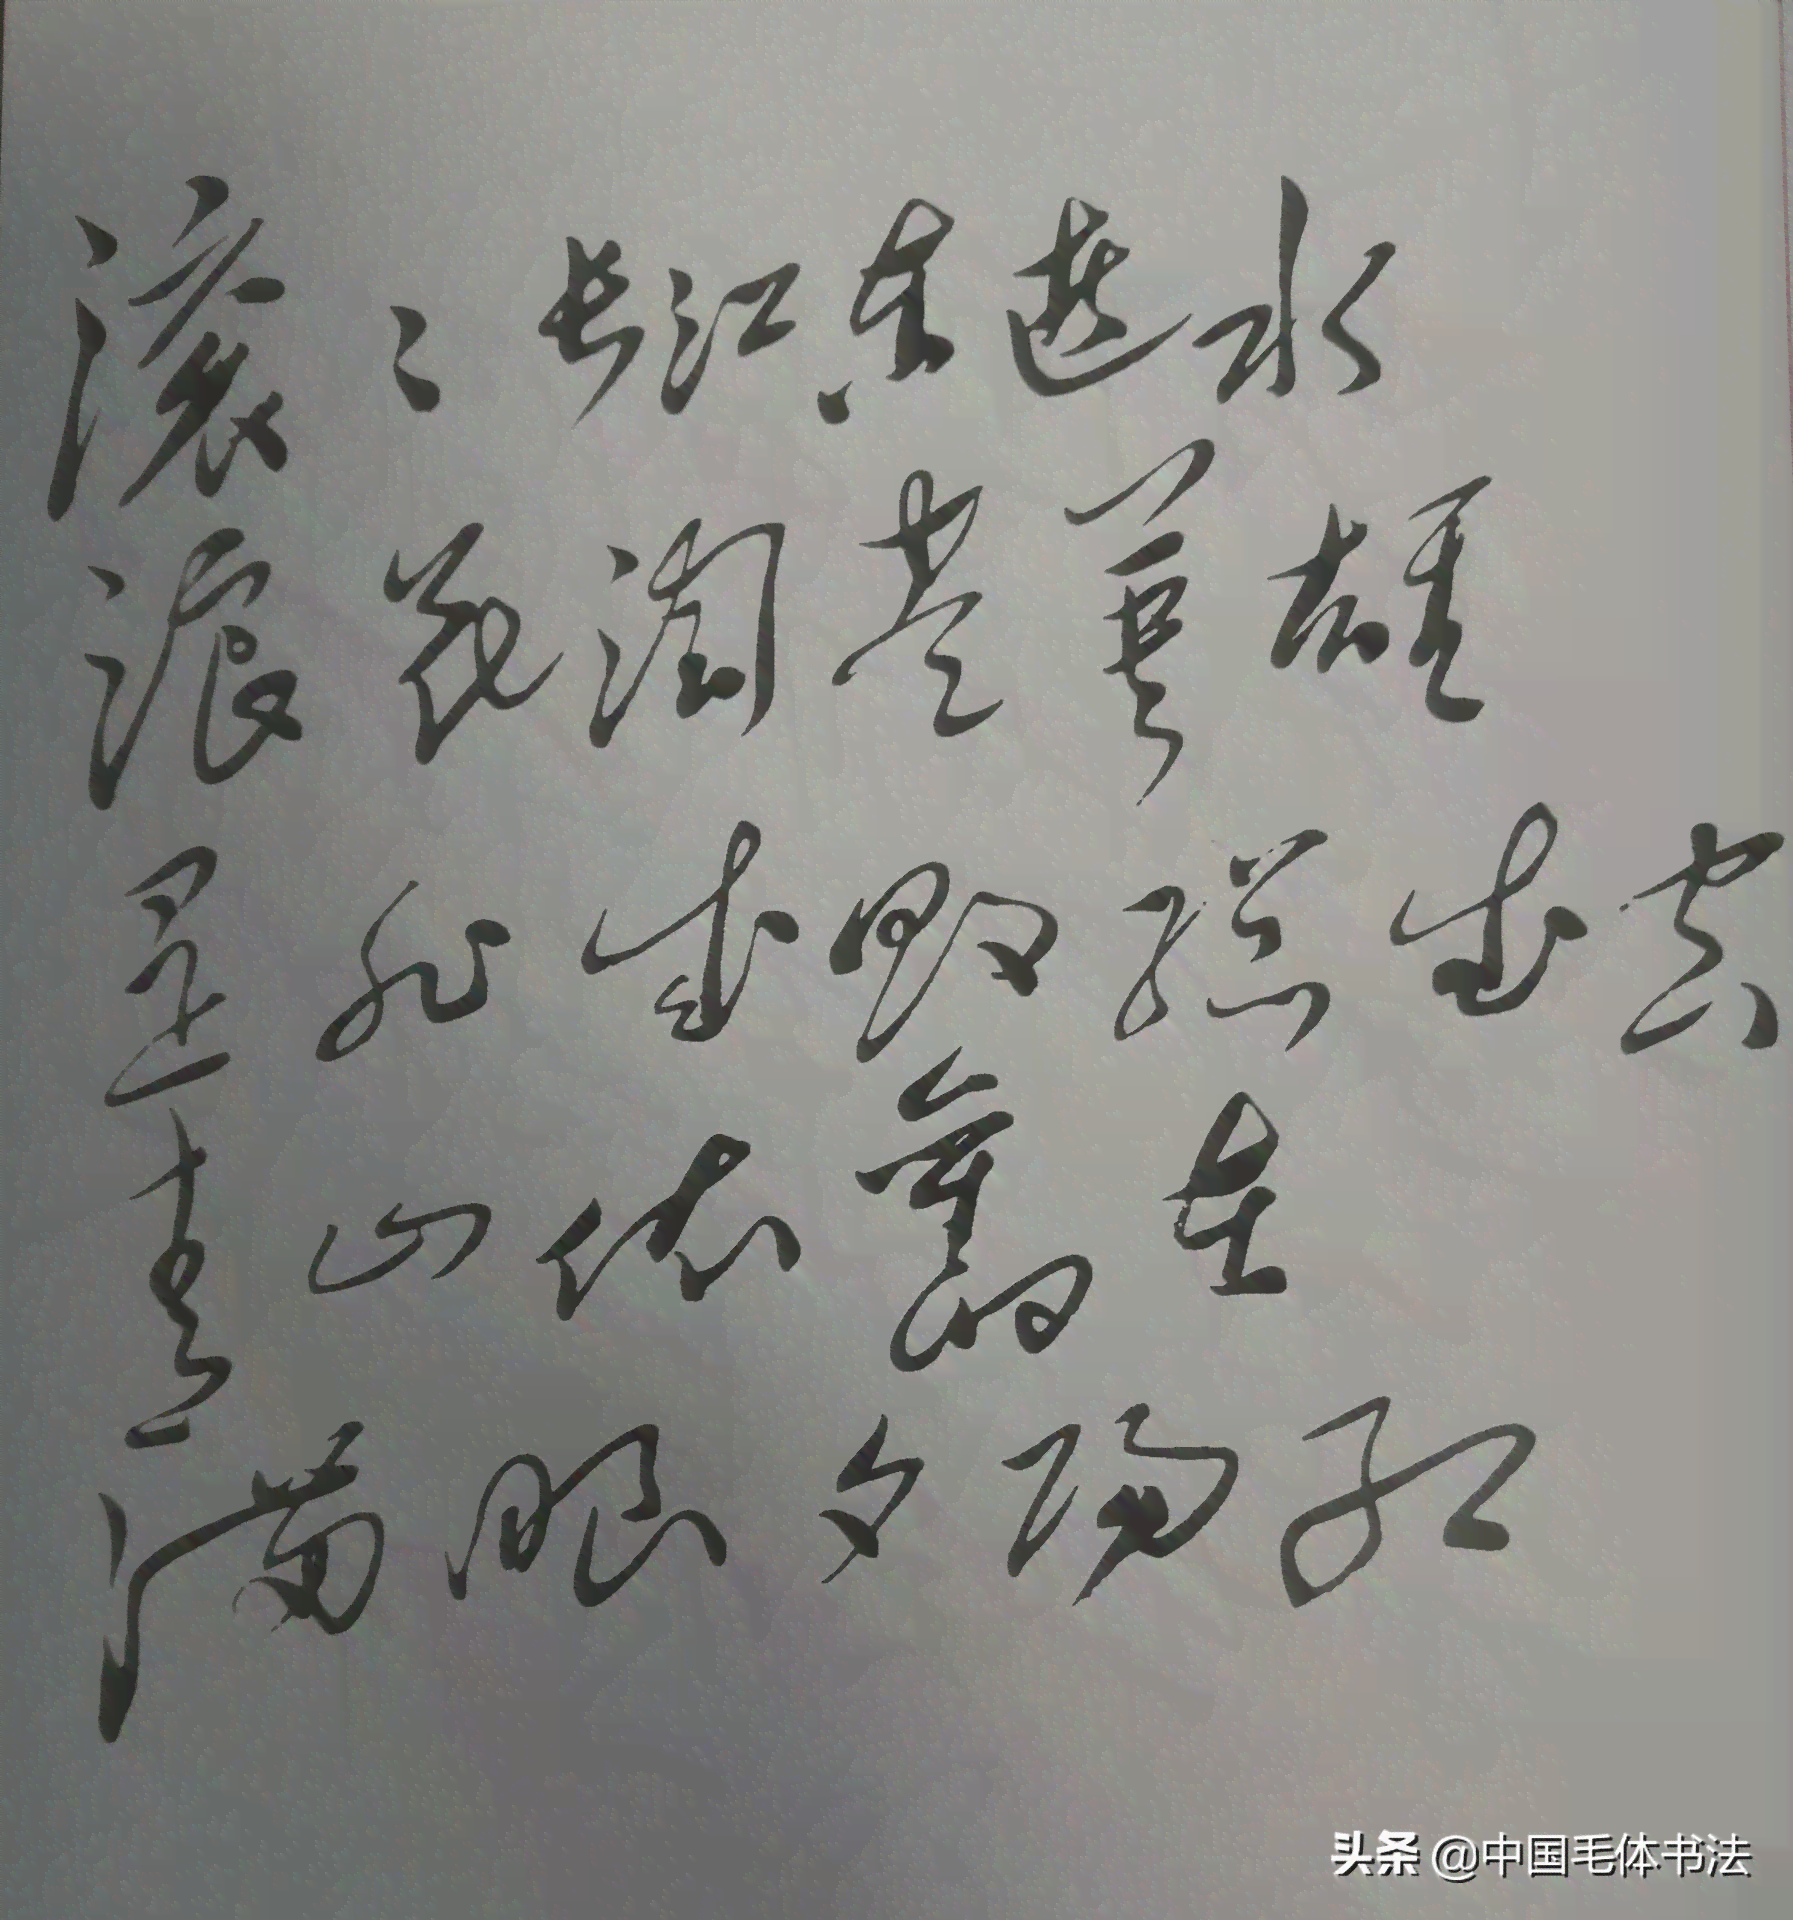 滚滚长江东逝水
浪花淘尽英雄
是非成败总成空
青山依舊在
满眼夕阳红
头条 @中国毛体书法